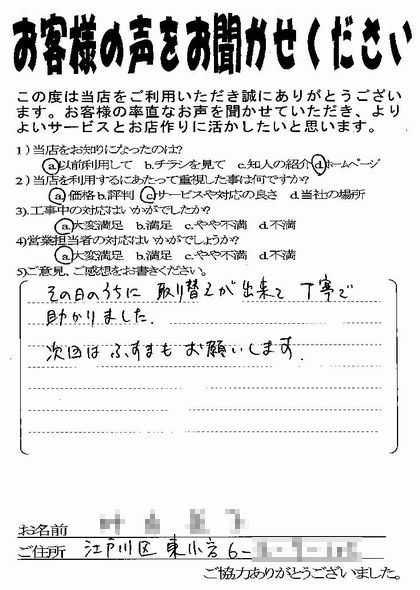 お客様の声をお聞かせください
この度は当店をご利用いただき誠にありがとうござい
ます。お客様の率直なお声を聞かせていただき、より
よいサービスとお店作りに活かしたいと思います。
1)当店をお知りになったのは?
a.以前利用して b.チラシを見て c.知人の紹介 d.ホームページ
2)当店を利用するにあたって重視した事は何ですか?
a.価格 b.評判 c.サービスや対応の良さ d.当社の場所
3).工事中の対応はいかがでしたか?
a.大変満足 b.満足 c.やや不満 d.不満
4)営業担当者の対応はいかがでしょうか?
a.大変満足 b.満足 c.やや不満 d.不満
5)ご意見、ご感想をお書きください。
その日のうちに 取り替えが出来て 丁寧で
助かりました.
次回は ふすまも お願いします.
お名前
ご住所 江戸川区 東小岩 6-
ご協力ありがとうございました。